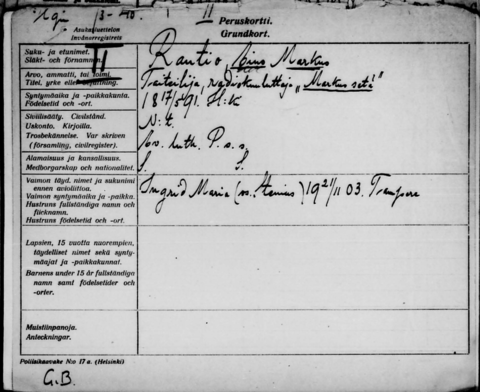 /3-40.
II
Asukasluettelon
Invånarregistrets
Peruskortti.
Grundkort.
II
Suku- ja etunimet.
Släkt- och förnamn.
Rautio, Eino Markus
Arvo, ammatti, tai toimi.
Titel, yrke eller
Taiteilija, "Markus setä"
Syntymäaika ja -paikkakunta.
Födelsetid och -ort.
18 17/5 91. H:k
Siviilisääty. Civilstånd.
N:t
Uskonto. Kirjoilla.
Trosbekännelse. Var skriven
( församling, civilregister).
Ev. luth. P. s. s.
Alamaisuus ja kansallisuus.
Medborgarskap och nationalitet.
S. S.
Vaimon täyd. nimet ja sukunimi
ennen avioliittoa.
Vaimon syntymäaika ja -paikka
Hustruns fullständiga namn och
flicknamn.
Hustruns födelsetid och -ort.
Ingrid Maria 19 21/11 03. Tampere
Lapsien, 15 vuotta nuorempien,
täydelliset nimet sekä synty-
mäajat ja -paikkakunnat.
Barnens under 15 år fullständiga
namn samt födelsetider och
-orter.
Muistiinpanoja.
Anteckningar.
Poliisikasvake N:o 17 a. (Helsinki)
G.B.